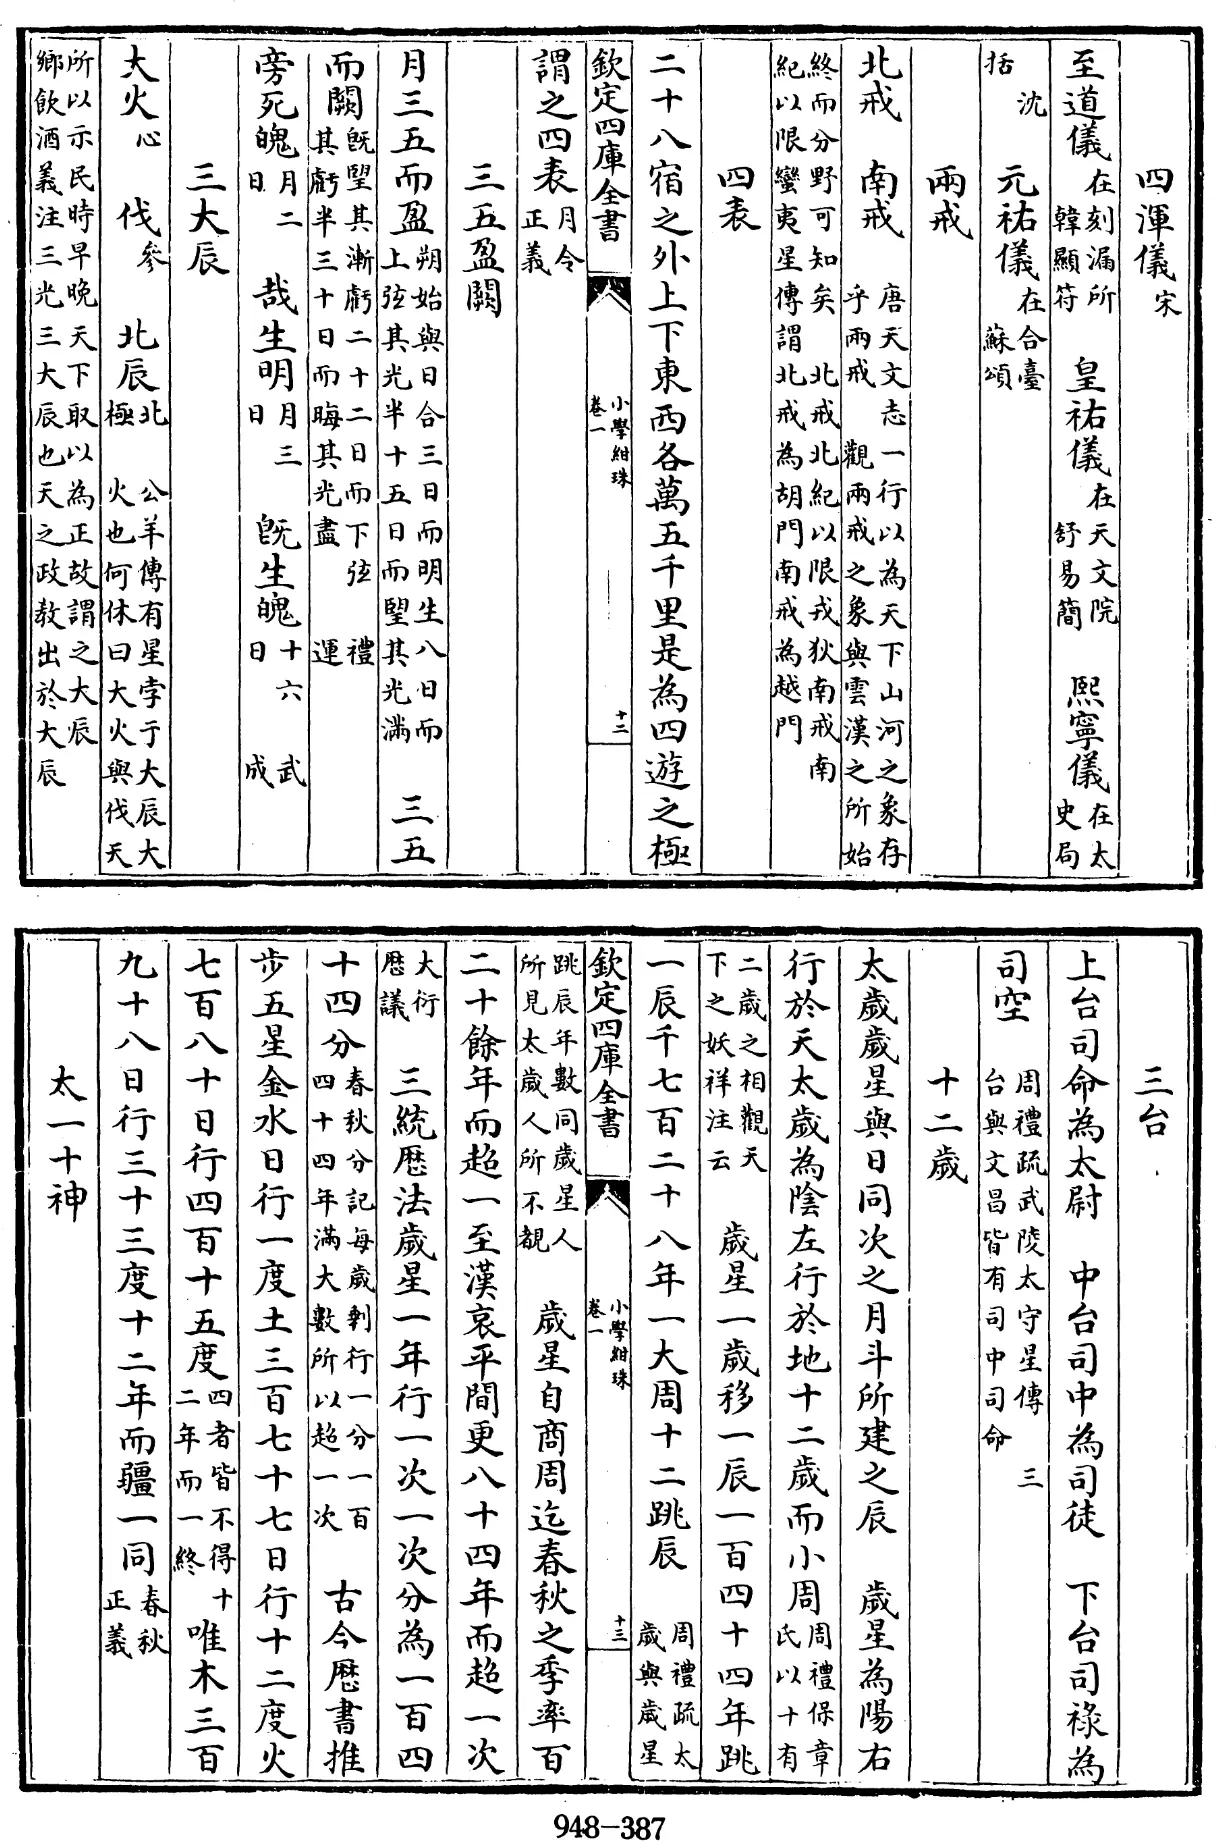 四渾儀宋
至道儀在刻漏所韓顯符　皇祐儀在天文院舒易簡　熙寧儀在太史局
沈括　元祐儀在合臺蘇頌
兩戒
北戒　南戒　唐天文志一行以為天下山河之象存乎兩戒　觀兩戒之象與雲漢之所始
終而分野可知矣　北戒北紀以限戎狄南戒南紀以限蠻夷星傳謂北戒為胡門南戒為越門
四表
二十八宿之外上下東西各萬五千里是為四遊之極
欽定四庫全書　小學紺珠　卷一　十二
謂之四表月令正義
三五盈闕
月三五而盈朔始與日合三日而明生八日而上弦其光半十五日而朢其光滿　三五
而闕旣朢其漸虧二十二日而下弦其虧半三十日而晦其光盡　禮運
旁死魄月二日　哉生明月三日　旣生魄十六日　武成
三大辰
大火心　伐參　北辰北極　公羊傳有星孛于大辰大火也何休曰大火與伐天
所以示民時早晚天下取以為正故謂之大辰鄉飲酒義注三光三大辰也天之政教出於大辰
三台
上台司命為太尉　中台司中為司徒　下台司祿為
司空　周禮疏武陵太守星傳　三台與文昌皆有司中司命
十二歲
太歲歲星與日同次之月斗所建之辰　歲星為陽右
行於天太歲為陰左行於地十二歲而小周周禮保章氏以十有
二歲之相觀天下之妖祥注云　歲星一歲移一辰一百四十四年跳
一辰千七百二十八年一大周十二跳辰　周禮疏太歲與歲星
欽定四庫全書　小學紺珠　卷一　十三
跳辰年數同歲星人所見太歲人所不覩　歲星自商周迄春秋之季率百
二十餘年而超一至漢哀平間更八十四年而超一次
大衍曆議　三統曆法歲星一年行一次一次分為一百四
十四分春秋分記每歲剩行一分一百四十四年滿大數所以超一次　古今曆書推
步五星金水日行一度土三百七十七日行十二度火
七百八十日行四百十五度四者皆不得十二年而一終　唯木三百
九十八日行三十三度十二年而疆一同春秋正義
太一十神
948-387